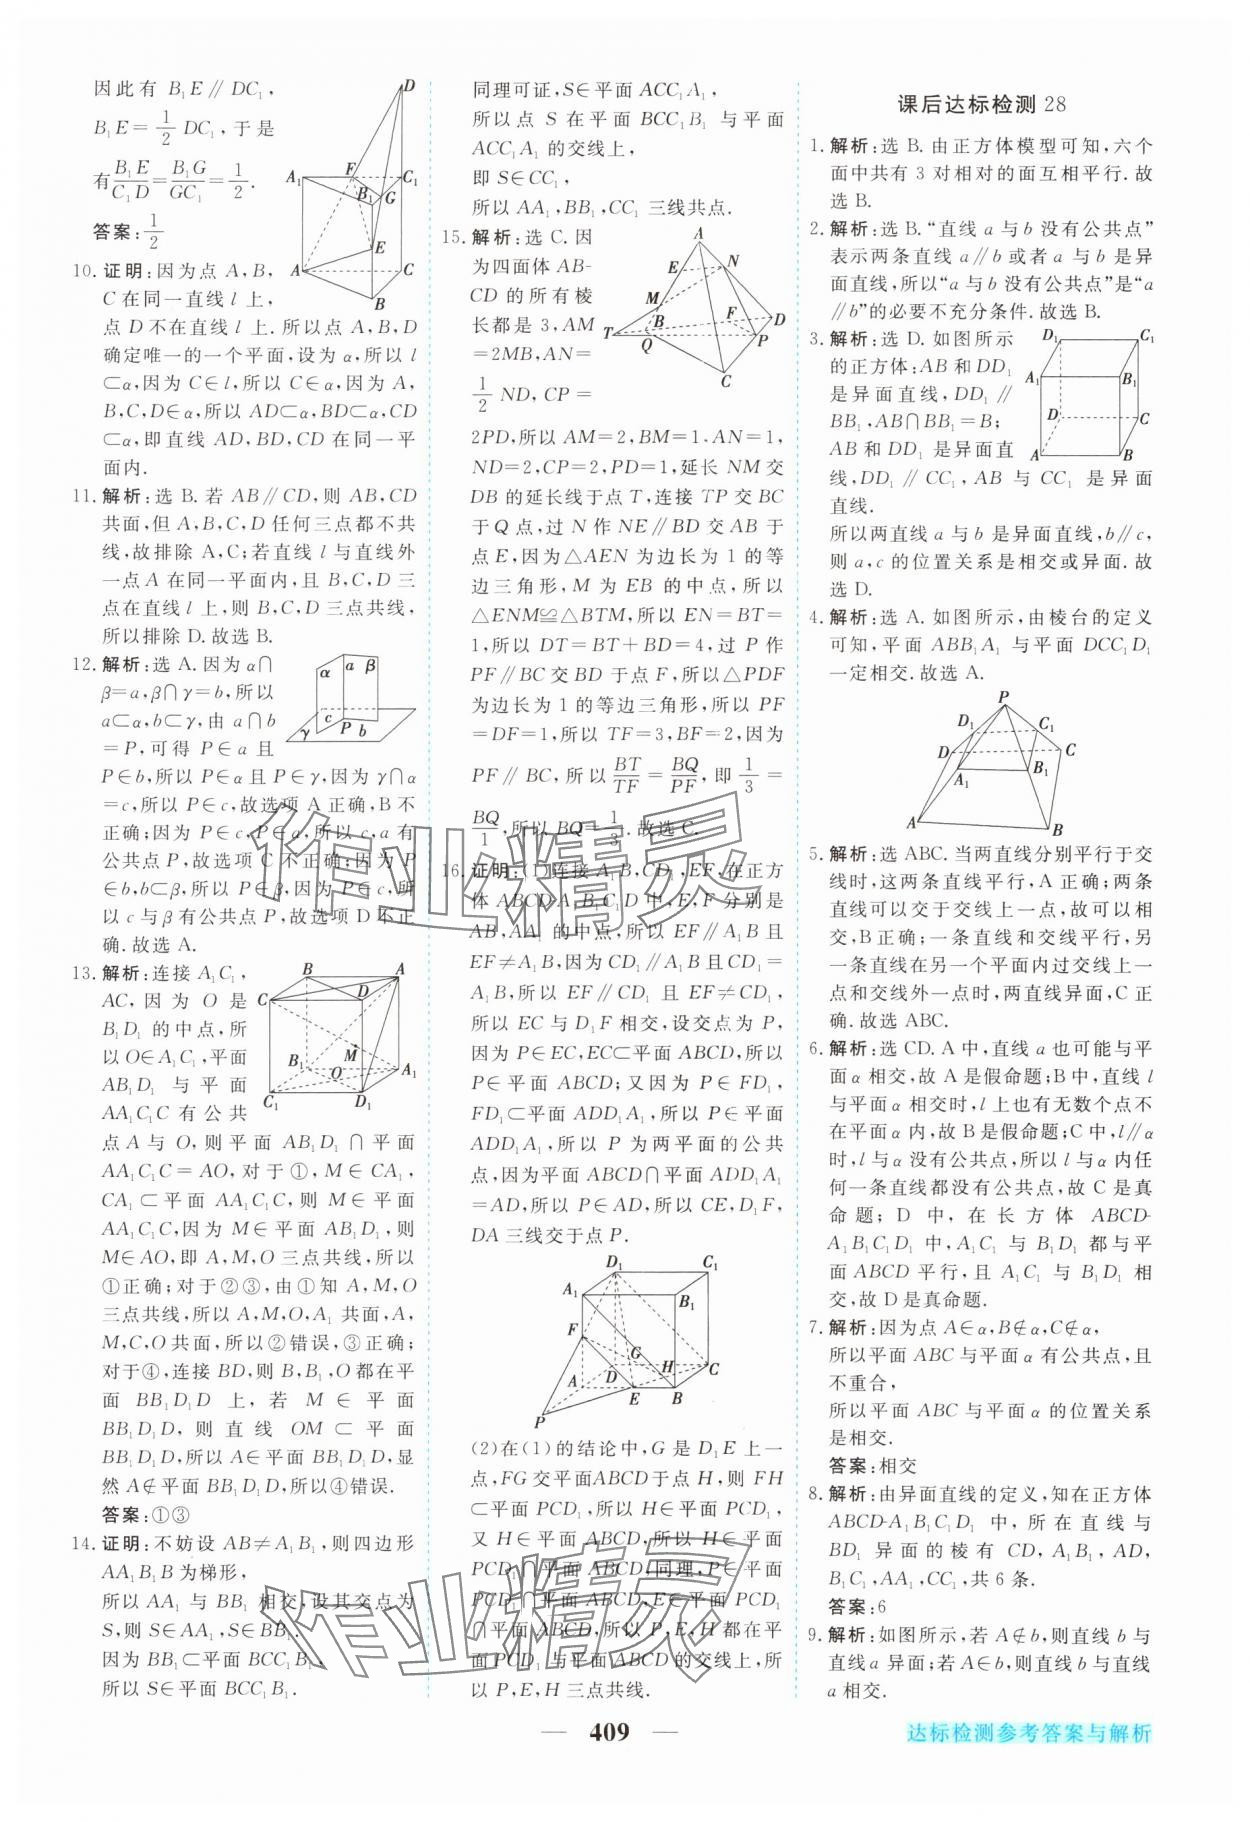 因此有 B₁E∥DC₁,
B₁E=1/2 DC₁,于是
有B₁E/C₁D=B₁G/GC₁=1/2.
答案:1/2
10. 证明:因为点 A,B,
C 在同一直线 l 上,
点 D 不在直线 l 上.所以点 A,B,D
确定唯一的一个平面,设为 α,所以 l
⊂α,因为 C∈l,所以 C∈α,因为 A,
B,C,D∈α,所以 AD⊂α,BD⊂α,CD
⊂α,即直线 AD,BD,CD 在同一平
面内.
11. 解析:选 B.若 AB∥CD,则 AB,CD
共面,但 A,B,C,D 任何三点都不共
线,故排除 A,C;若直线 l 与直线外
一点 A 在同一平面内,且 B,C,D 三
点在直线 l 上,则 B,C,D 三点共线,
所以排除 D.故选 B.
12. 解析:选 A.因为 α∩
β=a,β∩γ=b,所以
a⊂α,b⊂γ,由 a∩b
=P,可得 P∈a 且
P∈b,所以 P∈α 且 P∈γ,因为 γ∩α
=c,所以 P∈c,故选项 A 正确,B 不
正确;因为 P∈c,P∈a,所以 c,a 有
公共点 P,故选项 C 不正确;因为 P
∈b,b⊂β,所以 P∈β,因为 P∈c,所
以 c 与 β 有公共点 P,故选项 D 不正
确.故选 A.
13. 解析:连接 A₁C₁,
AC,因为 O 是
B₁D₁ 的中点,所
以 O∈A₁C₁,平面
AB₁D₁ 与平面
AA₁C₁C 有公共
点 A 与 O,则平面 AB₁D₁∩平面
AA₁C₁C=AO,对于①,M∈CA₁,
CA₁⊂平面 AA₁C₁C,则 M∈平面
AA₁C₁C,因为 M∈平面 AB₁D₁,则
M∈AO,即 A,M,O 三点共线,所以
①正确;对于②③,由①知 A,M,O
三点共线,所以 A,M,O,A₁ 共面,A,
M,C,O 共面,所以②错误,③正确;
对于④,连接 BD,则 B,B₁,O 都在平
面 BB₁D₁D 上,若 M∈平面
BB₁D₁D,则直线 OM⊂平面
BB₁D₁D,所以 A∈平面 BB₁D₁D,显
然 A∉平面 BB₁D₁D,所以④错误.
答案:①③
14. 证明:不妨设 AB≠A₁B₁,则四边形
AA₁B₁B 为梯形,
所以 AA₁ 与 BB₁ 相交,设其交点为
S,则 S∈AA₁,S∈BB₁.
因为 BB₁⊂平面 BCC₁B₁,
所以 S∈平面 BCC₁B₁.
同理可证,S∈平面 ACC₁A₁,
所以点 S 在平面 BCC₁B₁ 与平面
ACC₁A₁ 的交线上,
即 S∈CC₁,
所以 AA₁,BB₁,CC₁ 三线共点.
15. 解析:选 C.因
为四面体 AB-
CD 的所有棱
长都是 3,AM
=2MB,AN=
1/2 ND,CP=
2PD,所以 AM=2,BM=1.AN=1,
ND=2,CP=2,PD=1,延长 NM 交
DB 的延长线于点 T,连接 TP 交 BC
于 Q 点,过 N 作 NE∥BD 交 AB 于
点 E,因为△AEN 为边长为 1 的等
边三角形,M 为 EB 的中点,所以
△ENM≌△BTM,所以 EN=BT=
1,所以 DT=BT+BD=4,过 P 作
PF∥BC 交 BD 于点 F,所以△PDF
为边长为 1 的等边三角形,所以 PF
=DF=1,所以 TF=3,BF=2,因为
PF∥BC,所以BT/TF=BQ/PF,即1/3=
BQ/1,所以 BQ=1/3.故选 C.
16. 证明:(1)连接 A₁B,CD₁,EF,在正方
体 ABCD-A₁B₁C₁D₁ 中,E,F 分别是
AB,AA₁ 的中点,所以 EF∥A₁B 且
EF≠A₁B,因为 CD₁∥A₁B 且 CD₁=
A₁B,所以 EF∥CD₁ 且 EF≠CD₁,
所以 EC 与 D₁F 相交,设交点为 P,
因为 P∈EC,EC⊂平面 ABCD,所以
P∈平面 ABCD;又因为 P∈FD₁,
FD₁⊂平面 ADD₁A₁,所以 P∈平面
ADD₁A₁,所以 P 为两平面的公共
点,因为平面 ABCD∩平面 ADD₁A₁
=AD,所以 P∈AD,所以 CE,D₁F,
DA 三线交于点 P.
(2)在(1)的结论中,G 是 D₁E 上一
点,FG 交平面ABCD于点 H,则 FH
⊂平面 PCD₁,所以 H∈平面 PCD₁,
又 H∈平面 ABCD,所以 H∈平面
PCD₁∩平面 ABCD,同理,P∈平面
PCD₁∩平面 ABCD,E∈平面 PCD₁
∩平面 ABCD,所以 P,E,H 都在平
面 PCD₁ 与平面 ABCD 的交线上,所
以 P,E,H 三点共线.
课后达标检测 28
1. 解析:选 B.由正方体模型可知,六个
面中共有 3 对相对的面互相平行.故
选 B.
2. 解析:选 B.“直线 a 与 b 没有公共点”
表示两条直线 a∥b 或者 a 与 b 是异
面直线,所以“a 与 b 没有公共点”是“a
∥b”的必要不充分条件.故选 B.
3. 解析:选 D.如图所示
的正方体:AB 和 DD₁
是异面直线,DD₁∥
BB₁,AB∩BB₁=B;
AB 和 DD₁ 是异面直
线,DD₁∥CC₁,AB 与 CC₁ 是异面
直线.
所以两直线 a 与 b 是异面直线,b∥c,
则 a,c 的位置关系是相交或异面.故
选 D.
4. 解析:选 A.如图所示,由棱台的定义
可知,平面 ABB₁A₁ 与平面 DCC₁D₁
一定相交.故选 A.
5. 解析:选 ABC.当两直线分别平行于交
线时,这两条直线平行,A 正确;两条
直线可以交于交线上一点,故可以相
交,B 正确;一条直线和交线平行,另
一条直线在另一个平面内过交线上一
点和交线外一点时,两直线异面,C 正
确.故选 ABC.
6. 解析:选 CD.A 中,直线 a 也可能与平
面 α 相交,故 A 是假命题;B 中,直线 l
与平面 α 相交时,l 上也有无数个点不
在平面 α 内,故 B 是假命题;C 中,l∥α
时,l 与 α 没有公共点,所以 l 与 α 内任
何一条直线都没有公共点,故 C 是真
命题;D 中,在长方体 ABCD-
A₁B₁C₁D₁ 中,A₁C₁ 与 B₁D₁ 都与平
面 ABCD 平行,且 A₁C₁ 与 B₁D₁ 相
交,故 D 是真命题.
7. 解析:因为点 A∈α,B∉α,C∉α,
所以平面 ABC 与平面 α 有公共点,且
不重合,
所以平面 ABC 与平面 α 的位置关系
是相交.
答案:相交
8. 解析:由异面直线的定义,知在正方体
ABCD-A₁B₁C₁D₁ 中,所在直线与
BD₁ 异面的棱有 CD,A₁B₁,AD,
B₁C₁,AA₁,CC₁,共 6 条.
答案:6
9. 解析:如图所示,若 A∉b,则直线 b 与
直线 a 异面;若 A∈b,则直线 b 与直线
a 相交.
— 409 —
达标检测参考答案与解析
作业精灵
作业精灵